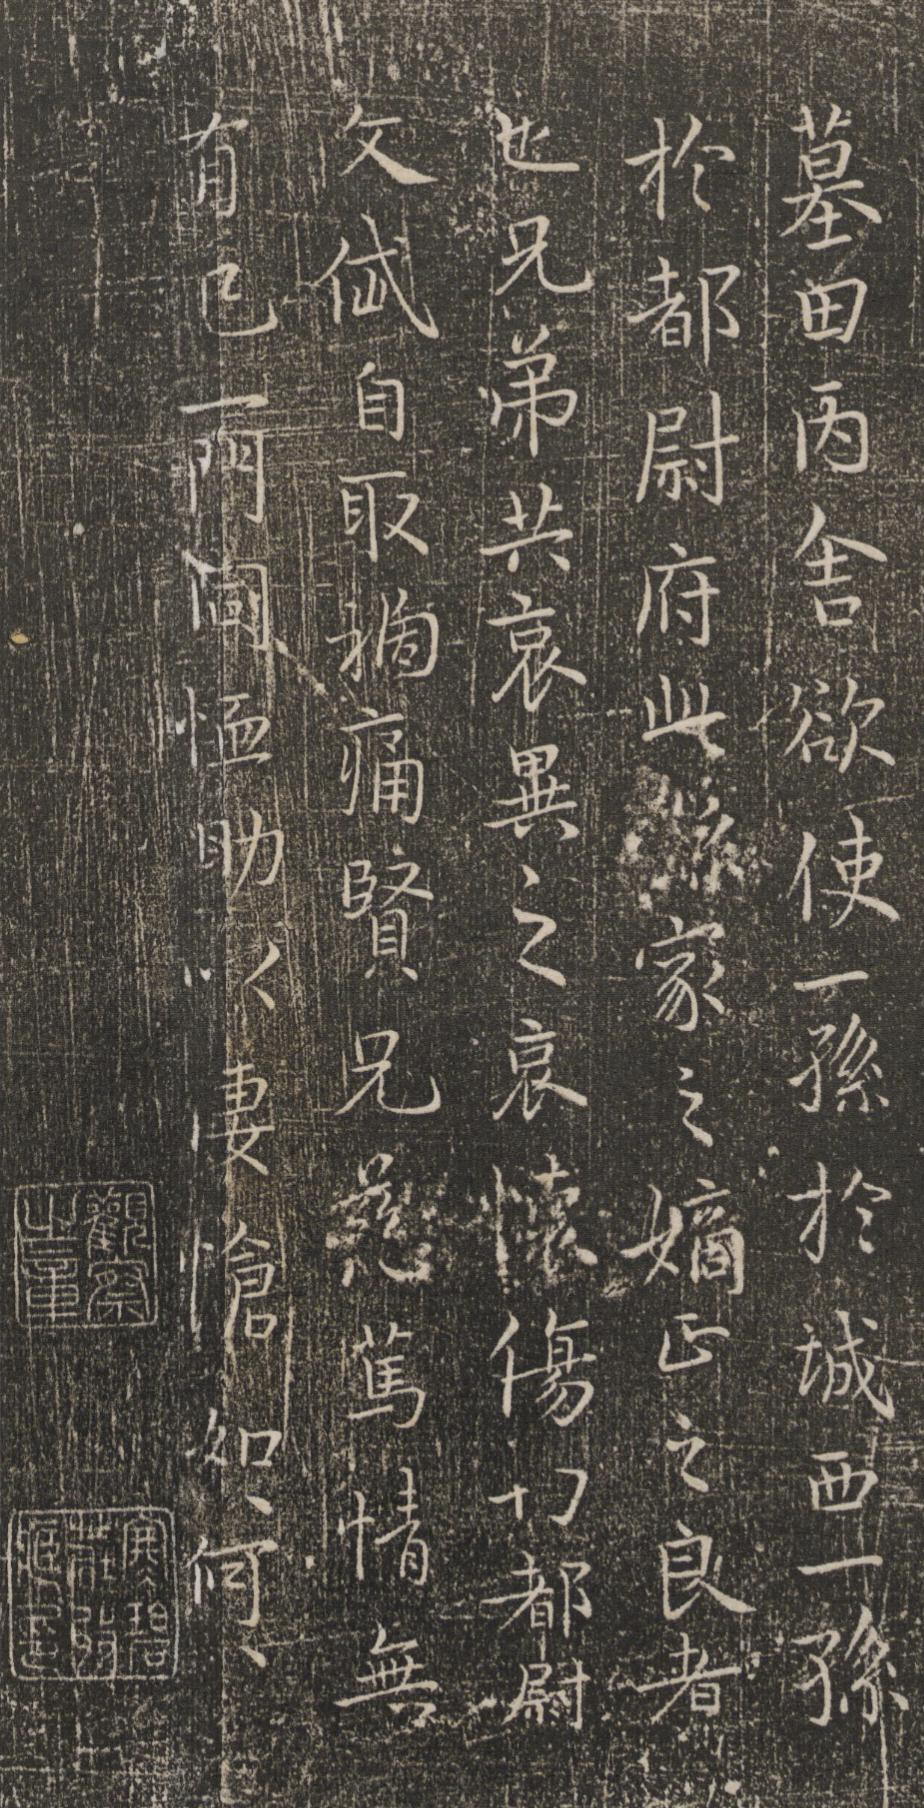 墓田丙舍欲使一孫於城西一孫
於都尉府此繇家之嫡正之良者
也兄弟共哀異之哀懷傷切都尉
文岱自取禍痛賢兄慈篤情無
有已一門同恤助以悽愴如、何、
觀察
之章